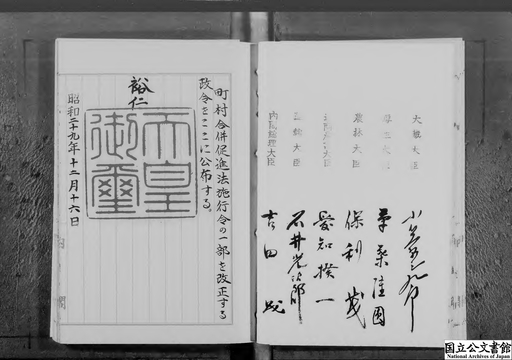 町村合併促進法施行令の一部を改正する
政令をここに公布する。
裕仁
天皇
御璽
昭和二十九年十二月十六日
大蔵大臣
農林大臣
内閣総理大臣
小笠原三九郎
草葉隆圓
保利茂
愛知揆一
石井光次郎
吉田茂
国立公文書館
National Archives of Japan